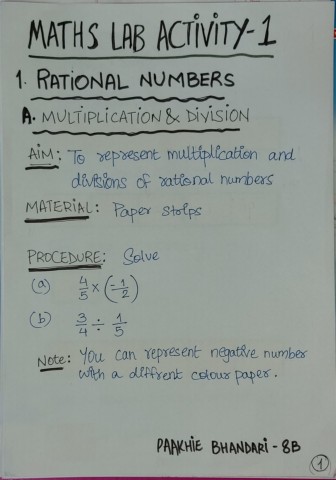 MATHS LAB ACTIVITY-1
1. RATIONAL NUMBERS
A. MULTIPLICATION & DIVISION
AIM: To represent multiplication and
divisions of rational numbers
MATERIAL: Paper strips
PROCEDURE: Solve
(a) 4/5 × (-1/2)
(b) 3/4 ÷ 1/5
Note: You can represent negative number
with a diffrent colour paper.
PAAKHIE BHANDARI - 8B
1